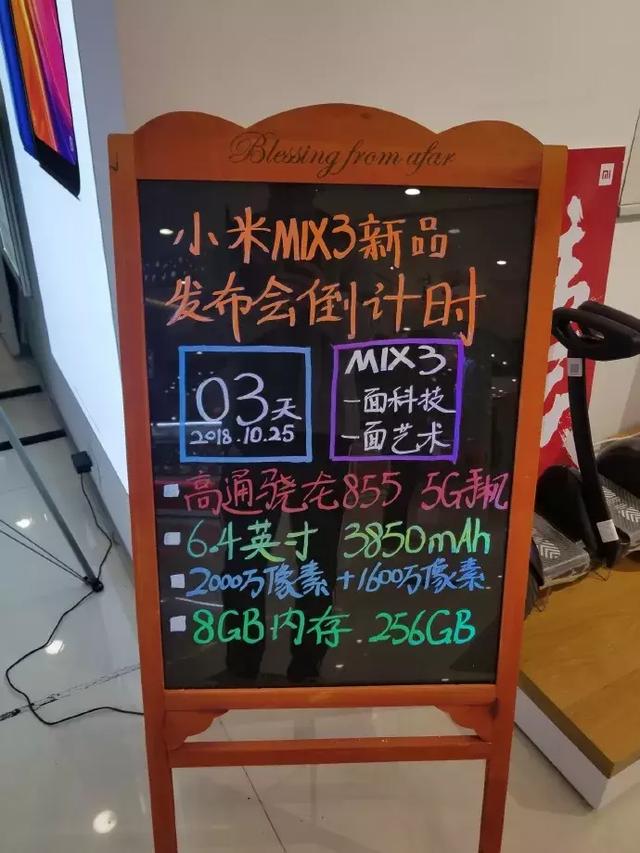 Blessing from afar
小米MIX3新品
发布会倒计时
03天
2018.10.25
MIX3
一面科技
一面艺术
高通骁龙855 5G手机
6.4英寸 3850mAh
2000万像素+1600万像素
8GB内存 256GB
mi